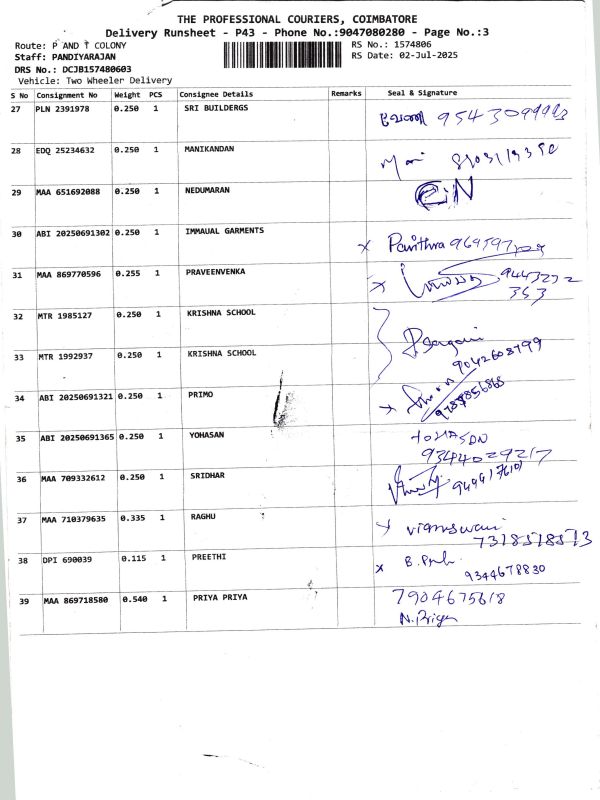 THE PROFESSIONAL COURIERS, COIMBATORE
Delivery Runsheet - P43 - Phone No.:9047080280 - Page No.:3
Route: P AND T COLONY
RS No.: 1574806
Staff: PANDIYARAJAN
RS Date: 02-Jul-2025
DRS No.: DCJB157480603
Vehicle: Two Wheeler Delivery
S No Consignment No Weight PCS Consignee Details Remarks Seal & Signature
27 PLN 2391978 0.250 1 SRI BUILDERGS
28 EDQ 25234632 0.250 1 MANIKANDAN Mani
29 MAA 651692088 0.250 1 NEDUMARAN
30 ABI 20250691302 0.250 1 IMMAUAL GARMENTS x Pavithra
31 MAA 869770596 0.255 1 PRAVEENVENKA x 9443272
353
32 MTR 1985127 0.250 1 KRISHNA SCHOOL
33 MTR 1992937 0.250 1 KRISHNA SCHOOL 9042608799
34 ABI 20250691321 0.250 1 PRIMO x
35 ABI 20250691365 0.250 1 YOHASAN YOHASON
9344029217
36 MAA 709332612 0.250 1 SRIDHAR
37 MAA 710379635 0.335 1 RAGHU x
7318518513
38 DPI 690039 0.115 1 PREETHI x
9344678830
39 MAA 869718580 0.540 1 PRIYA PRIYA 7904675618
N. Priya